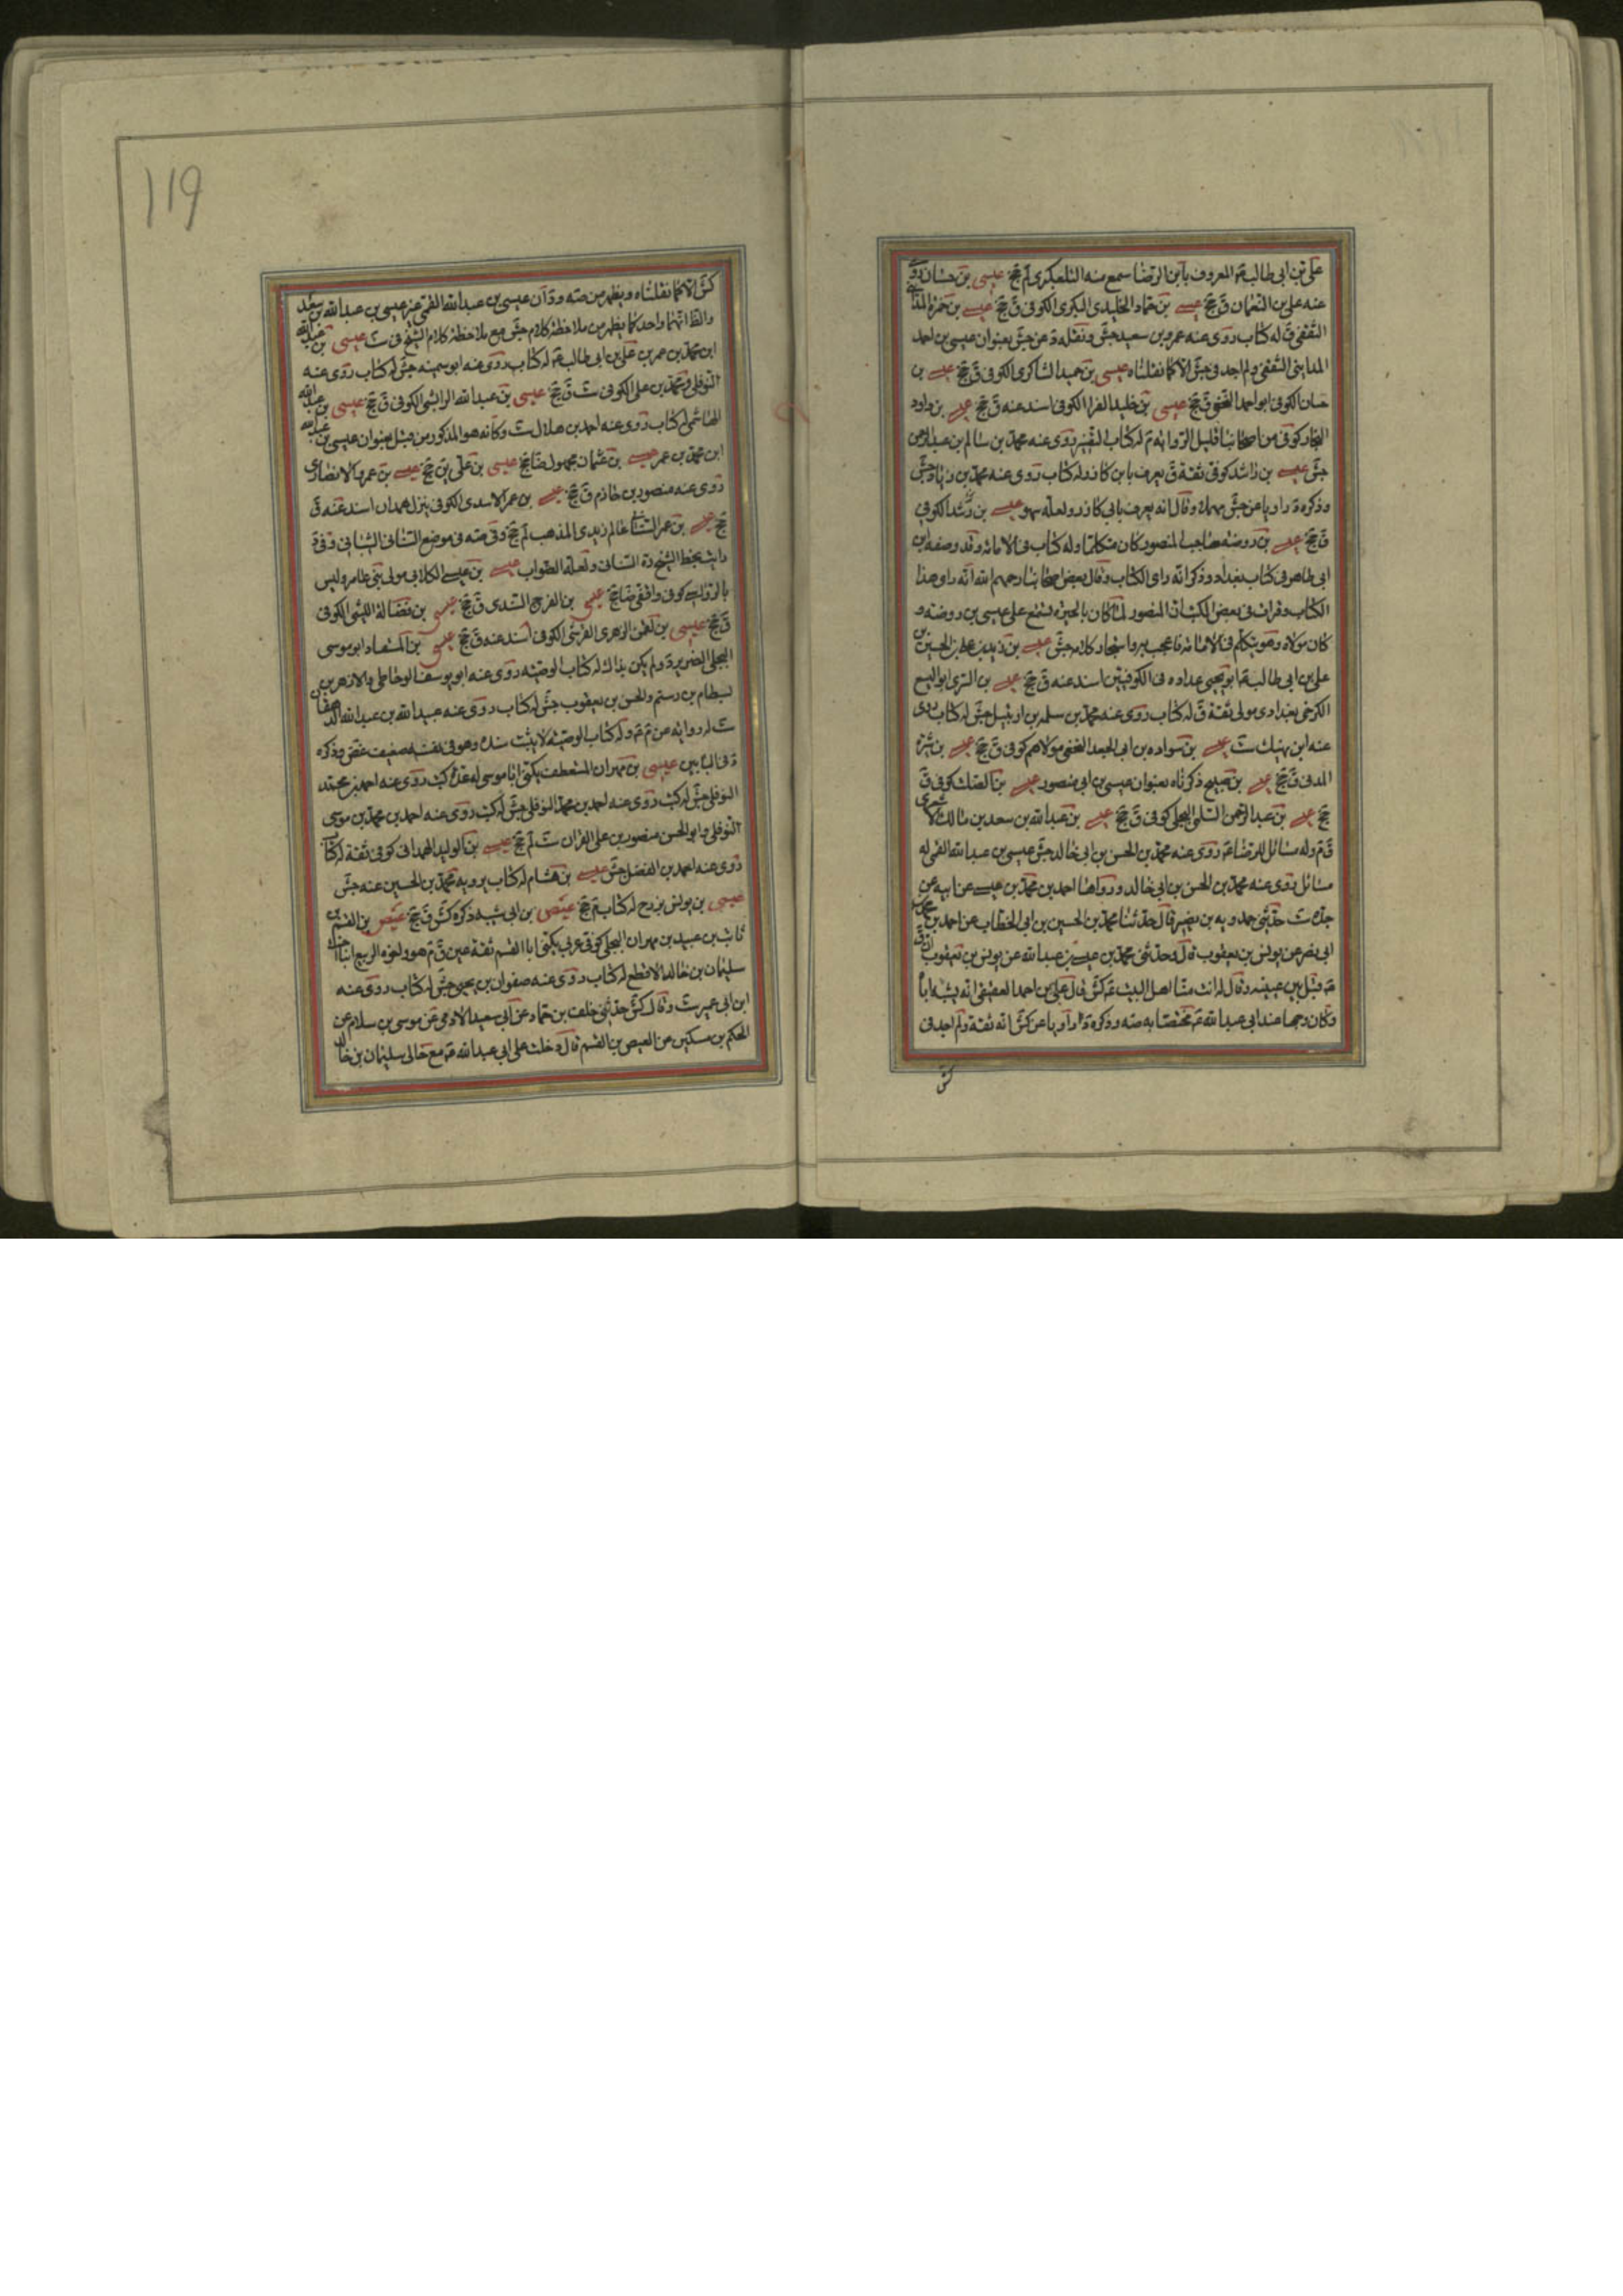 على بن ابى طالب ع المعروف بابن الرضا سمع منه التلعكبرى لم جخ عيسى بن حسان روى
عنه على بن النعمان ق جخ عيسى بن حماد الخليدى البكرى الكوفى ق جخ عيسى بن حمزة المدا
الثقفى ق له كتاب روى عنه عمرو بن سعيد جش ونقله د عن جش بعنوان عيسى بن احمد
المداينى الثقفى ولم اجد فى جش الا كما نقلناه عيسى بن حميد الشاكرى الكوفى ق جخ عيسى بن
حسان الكوفى ابو احمد النخعى ق جخ عيسى بن خليد الفرا الكوفى اسند عنه ق جخ عيسى بن داود
النجار كوفى من اصحابنا قليل الرواية م له كتاب التفسير روى عنه محمد بن سالم بن عبد الرحمن
جش عيسى بن راشد كوفى ثقة ق يعرف بابن كازر وله كتاب روى عنه محمد بن زياد جش
وذكره د راويا عن جش مهملا وقال انه يعرف بابى كازر ولعله سهو عيسى بن رشد الكوفى
ق جخ عيسى بن روضه صاحب المنصور كان متكلما وله كتاب فى الامامة وقد وصفه ابن
ابى طاهر فى كتاب بغداد وذكر انه راى الكتاب وقال بعض اصحابنا رحمهم الله انه راى هذا
الكتاب وقرات فى بعض الكتب ان المنصور لما كان بالحيرة تسمع على عيسى بن روضه و
كان مولاه وهو يتكلم فى الامامة فاعجب به واستجاد كلامه جش عيسى بن زيد بن على بن الحسين بن
على بن ابى طالب ع ابو يحيى عداده فى الكوفيين اسند عنه ق جخ عيسى بن السرى ابو اليسع
الكرخى بغدادى مولى ثقة ق له كتاب روى عنه محمد بن سلمه بن ارتبيل جش له كتاب روى
عنه ابن نهيك ست عيسى بن سواده بن ابى الجعد النخعى مولاهم كوفى ق جخ عيسى بن شبرة
المدنى ق جخ عيسى بن صبيح ذكرناه بعنوان عيسى بن ابى منصور عيسى بن الصلت كوفى ق
جخ عيسى بن عبد الرحمن السلمى البجلى كوفى ق جخ عيسى بن عبد الله بن سعد بن مالك الاشعرى
ق م وله مسائل للرضا ع روى عنه محمد بن الحسن بن ابى خالد جش عيسى بن عبد الله القمى له
مسائل روى عنه محمد بن الحسن بن ابى خالد ورواها احمد بن محمد بن عيسى عن ابيه عن
جده ست حدثنى حمدويه بن نصير قال حدثنا محمد بن الحسين بن ابى الخطاب عن احمد بن محمد
ابى نصر عن يونس بن يعقوب قال وحدثنى محمد بن عيسى بن عبد الله عن يونس بن يعقوب ان ق
ع قبل بين عينيه وقال له انت منا اهل البيت ع كش قال على بن احمد العقيقى انه يشبه اباه
وكان وجها عند ابى عبد الله ع مختصا به صه وذكره د راويا عن كش انه ثقة ولم اجد فى
كش
119
كش الا كما نقلناه ويظهر من صه و د ان عيسى بن عبد الله القمى غير عيسى بن عبد الله بن سعد
والظا انهما واحد كما يظهر من ملاحظة كلام جش مع ملاحظة كلام الشيخ فى ست عيسى بن عبد الله
ابن محمد بن عمر بن على بن ابى طالب ع له كتاب روى عنه ابو سمينه جش له كتاب روى عنه
النوفلى ومحمد بن على الكوفى ست ق جخ عيسى بن عبد الله الرابشى الكوفى ق جخ عيسى بن عبد الله
الهاشمى له كتاب روى عنه احمد بن هلال ست وكانه هو المذكور من قبل بعنوان عيسى بن عبد الله
ابن محمد بن عمر عيسى بن عثمان مجهول ضا جخ عيسى بن على ين جخ عيسى بن عمرو الانصارى
روى عنه منصور بن حازم ق جخ عيسى بن عمر الاسدى الكوفى ينزل همدان اسند عنه ق
جخ عيسى بن عمر السنانى عالم زيدى المذهب لم جخ وفى صه فى موضع السنانى الشبانى وفى د
رايت بخط الشيخ ره السنانى ولعله الصواب عيسى بن عيسى الكلابى مولى بنى عامر وليس
بالرواسى كوفى واقفى ضا جخ عيسى بن الفرج السندى ق جخ عيسى بن فضالة الليثى الكوفى
ق جخ عيسى بن لقمن الزهرى القرشى الكوفى اسند عنه ق جخ عيسى بن المستفاد ابو موسى
البجلى الضرير د ولم يكن بذاك له كتاب الوصيه روى عنه ابو يوسف الوحاظى والازهر بن
بسطام بن رستم والحسن بن يعقوب جش له كتاب روى عنه عبيد الله بن عبد الله الدهقان
ست له رواية عن م ولد كتاب الوصيه لا يثبت سنده وهو فى نفسه ضعيف غض وذكره
د فى البابين عيسى بن مهران المستعطف يكنى ابا موسى له عدة كتب روى عنه احمد بن محمد
النوفلى جش له كتب روى عنه احمد بن محمد النوفلى جش له كتب روى عنه احمد بن محمد بن موسى
النوفلى وابو الحسن منصور بن على القزاز ست لم جخ عيسى بن الوليد الهمدانى كوفى ثقة له كتاب
روى عنه احمد بن الفضل جش عيسى بن هشام له كتاب يرويه محمد بن الحسين عنه جش
عيسى بن يونس بزرج له كتاب م جخ عيص بن ابى شبه ذكره كش ق جخ عيص بن القسم بن
ثابت بن عبيد بن مهران البجلى كوفى عربى يكنى ابا القسم ثقة عين ق م هو ولخوه الربيع ابنا اخت
سليمان بن خالد الاقطع له كتاب روى عنه صفوان بن يحيى جش له كتاب روى عنه
ابن ابى عمير ست وقال كش حدثنى خلف بن حماد عن ابى سعيد الادمى عن موسى بن سلام عن
الحكم بن مسكين عن العيص بن القسم قال دخلت على ابى عبد الله ع مع خالى سليمان بن خالد